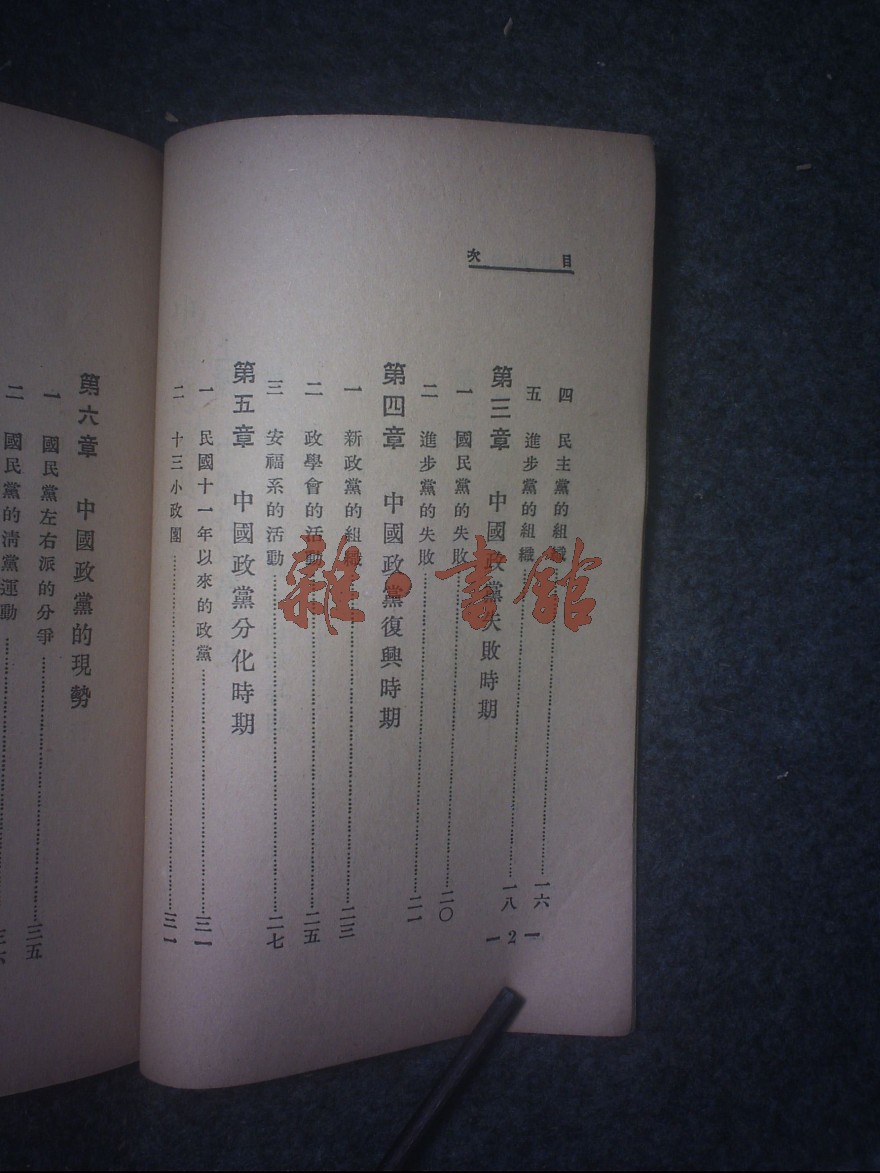 目次
四 民主黨的組織⋯⋯一六
五 進步黨的組織⋯⋯一八
第三章 中國政黨失敗時期
一 國民黨的失敗⋯⋯二〇
二 進步黨的失敗⋯⋯二一
第四章 中國政黨復興時期
一 新政黨的組織⋯⋯二三
二 政學會的活動⋯⋯二五
三 安福系的活動⋯⋯二七
第五章 中國政黨分化時期
一 民國十一年以來的政黨⋯⋯三一
二 十三小政團⋯⋯三一
— 2 —
第六章 中國政黨的現勢
一 國民黨左右派的分爭⋯⋯三五
二 國民黨的清黨運動⋯⋯三六
雜·書館